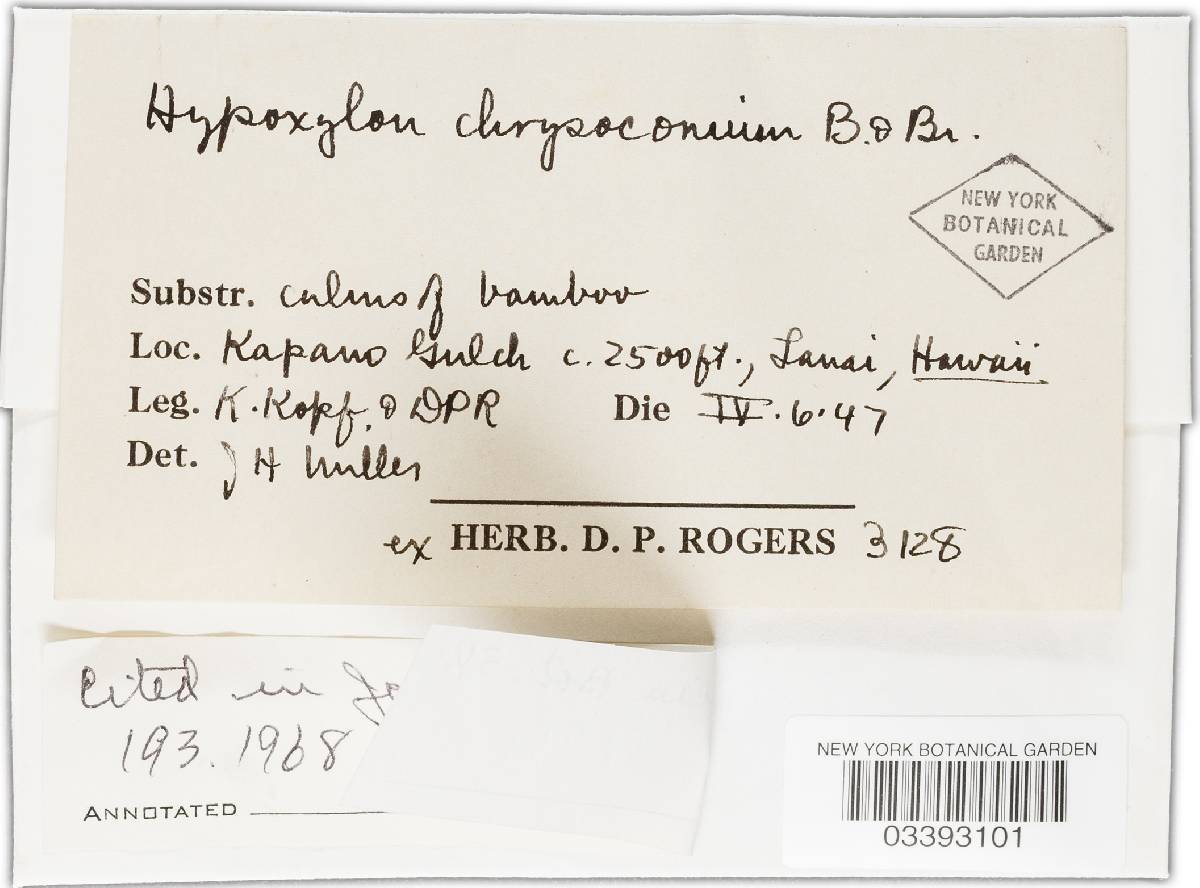 Hypoxylon chrysoconium B. & Br.
NEW YORK
BOTANICAL
GARDEN
Substr. culms of bamboo
Loc. Kapano Gulch c. 2500 ft., Lanai, Hawaii
Leg. K. Kopf. & DPR Die IV. 6. 47
Det. J H Miller
ex HERB. D. P. ROGERS 3128
Cited in
193. 1968
ANNOTATED
NEW YORK BOTANICAL GARDEN
03393101